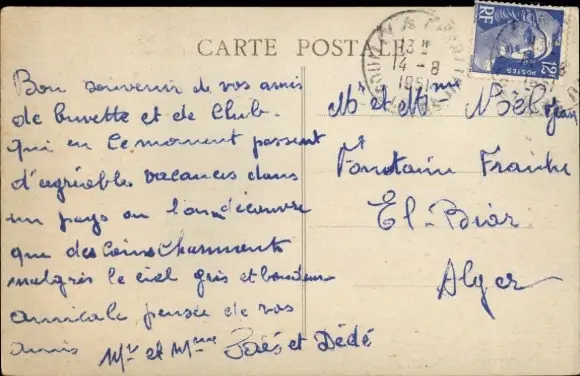 CARTE POSTALE
RF
12F
POSTES
13H
14-8
1951
Bon souvenir de vos amis
de buvette et de Club.
qui en ce moment passent
d'agréables vacances dans
un pays ou l'on découvre
que des coins charments
malgrés le ciel gris et
amicale pensée de vos
amis Mr et Mme et Dédé
Mr et Mme Noël Jean
Fontaine Fraiche
El-Biar
Alger